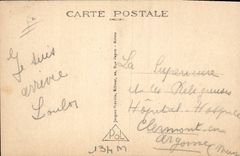 CARTE POSTALE
Je suis
arrivée
Loulou
La Supérieure
et les Religieuses
Hôpital-Hospice
Clermont-en
Argonne
Meuse
134 M